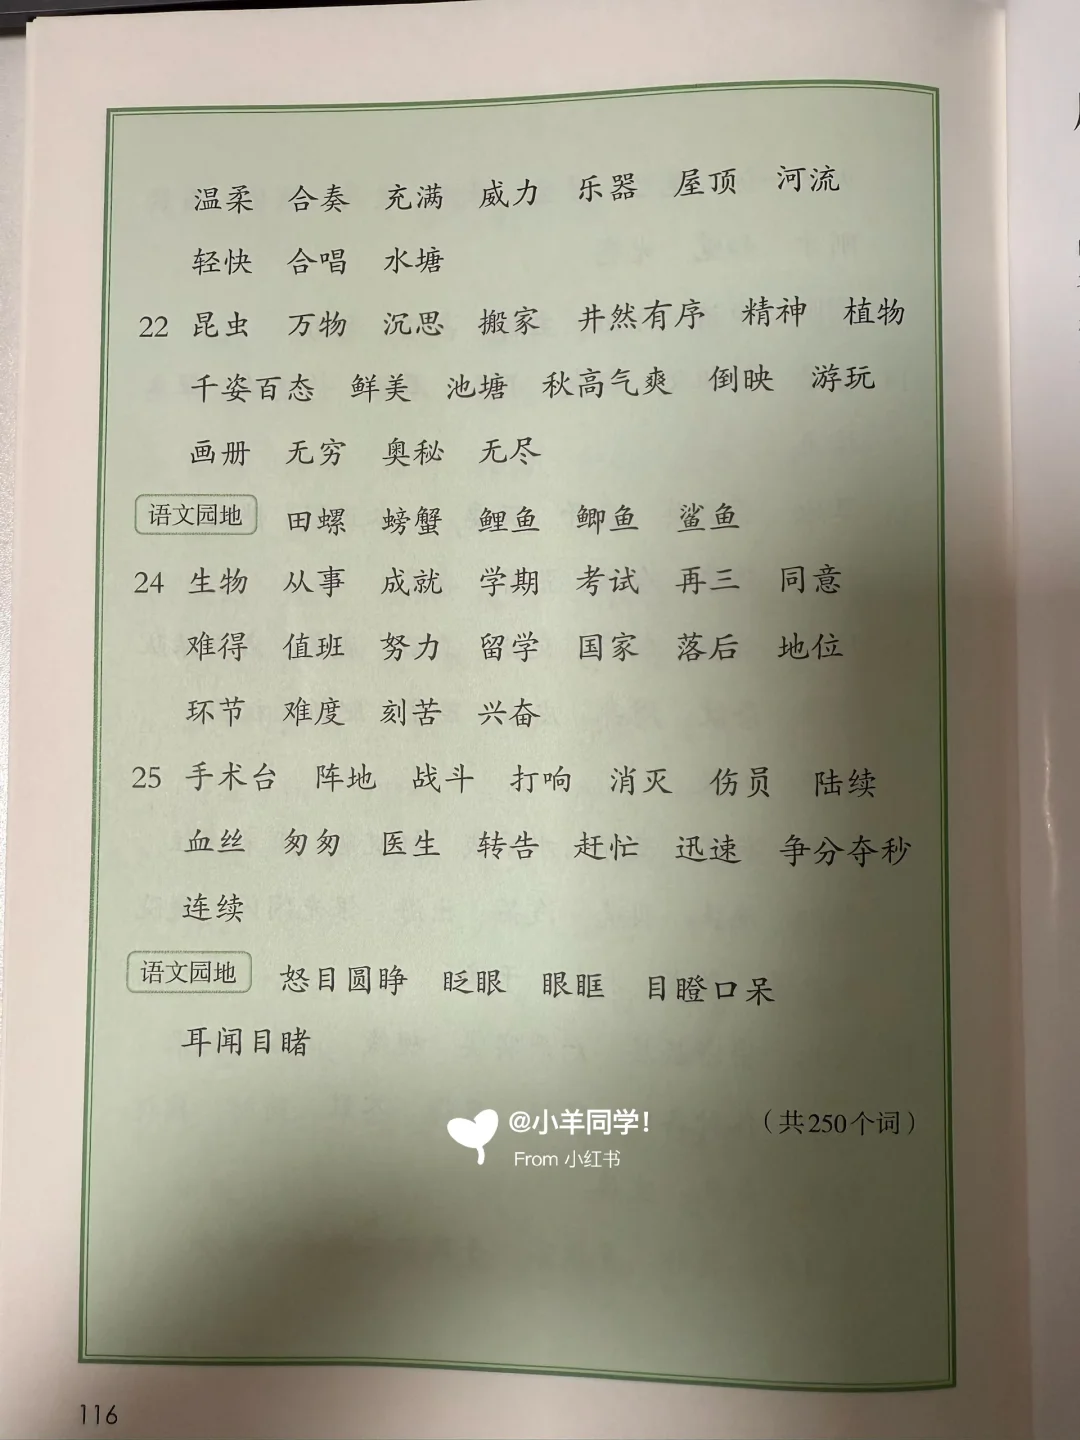 温柔 合奏 充满 威力 乐器 屋顶 河流
轻快 合唱 水塘
22 昆虫 万物 沉思 搬家 井然有序 精神 植物
千姿百态 鲜美 池塘 秋高气爽 倒映 游玩
画册 无穷 奥秘 无尽
语文园地 田螺 螃蟹 鲤鱼 鲫鱼 鲨鱼
24 生物 从事 成就 学期 考试 再三 同意
难得 值班 努力 留学 国家 落后 地位
环节 难度 刻苦 兴奋
25 手术台 阵地 战斗 打响 消灭 伤员 陆续
血丝 匆匆 医生 转告 赶忙 迅速 争分夺秒
连续
语文园地 怒目圆睁 眨眼 眼眶 目瞪口呆
耳闻目睹
（共250个词）
@小羊同学!
From 小红书
116